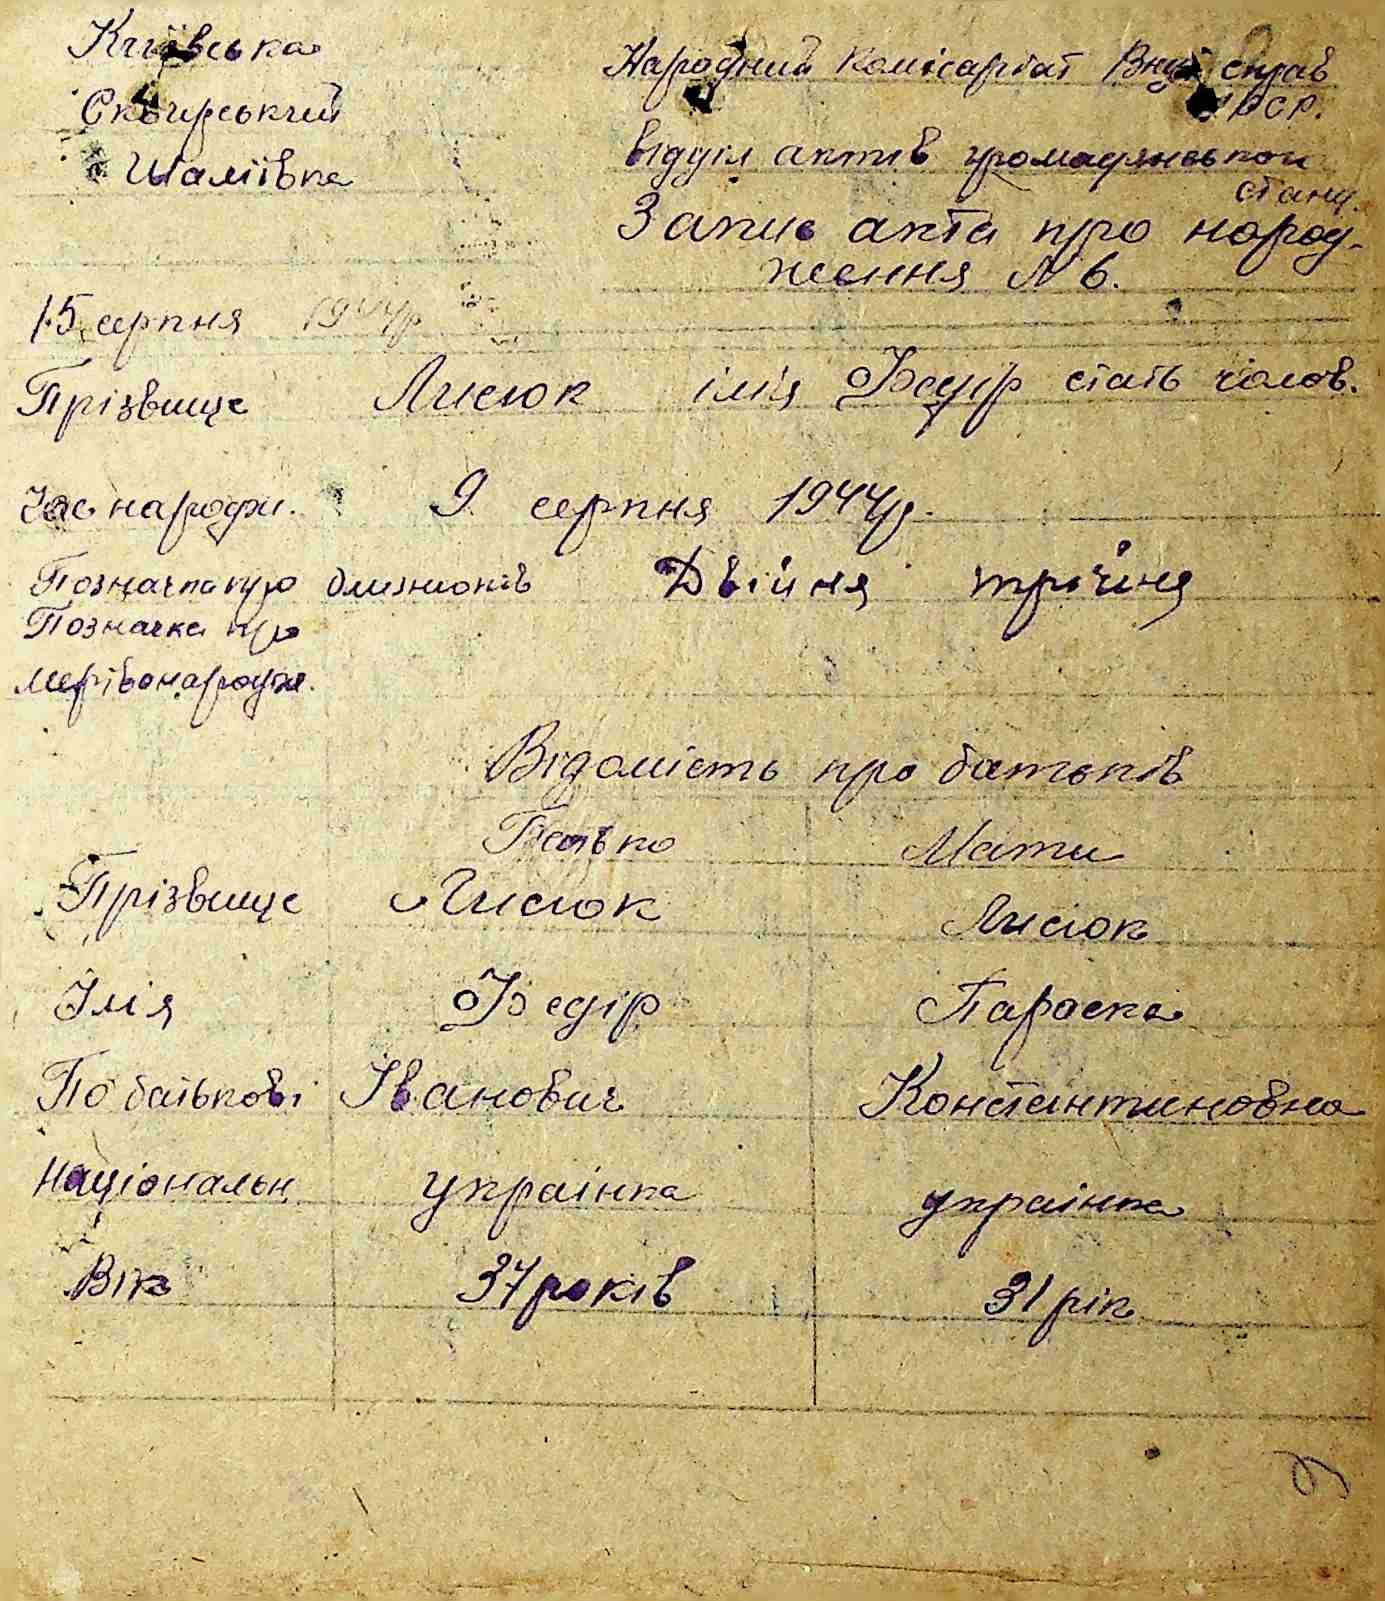 Київська
Сквирський
Шаліївка
Народний Комісаріат Внут справ
СРСР.
відділ актів громадянського
стану.
Запис акта про народ-
ження № 6.
15 серпня 1944р
Прізвище Лисюк ім'я Федір стать чолов.
Час народж. 9 серпня 1944р.
Позначка про близнюків Двійня трійня
Позначка про
мертвонародж.
Відомість про батьків
Батько Мати
Прізвище Лисюк Лисюк
Ім'я Федір Параска
По батькові Іванович Константиновна
Національн українка українка
Вік 37 років 31 рік